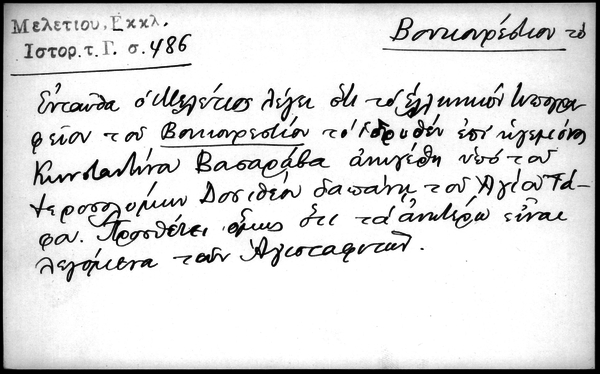 Μελετίου, Εκκλ.
Ιστορ. τ. Γ. σ. 486
Βουκουρέστιον τὸ
Ἐνταῦθα ὁ Μελέτιος λέγει ὅτι τὸ ἑλληνικὸν τυπογρα-
φεῖον τοῦ Βουκουρεστίου τὸ ἱδρυθὲν ἐπὶ ἡγεμόνος
Κωνσταντίνου Βασαράβα ἀνηγέρθη ὑπὸ τοῦ
Ἱεροσολύμων Δοσιθέου δαπάνῃ τοῦ Ἁγίου Τά-
φου. Προσθέτει ὅμως ὅτι τὰ ἀνωτέρω εἶναι
λεγόμενα τῶν Ἁγιοταφιτῶν.